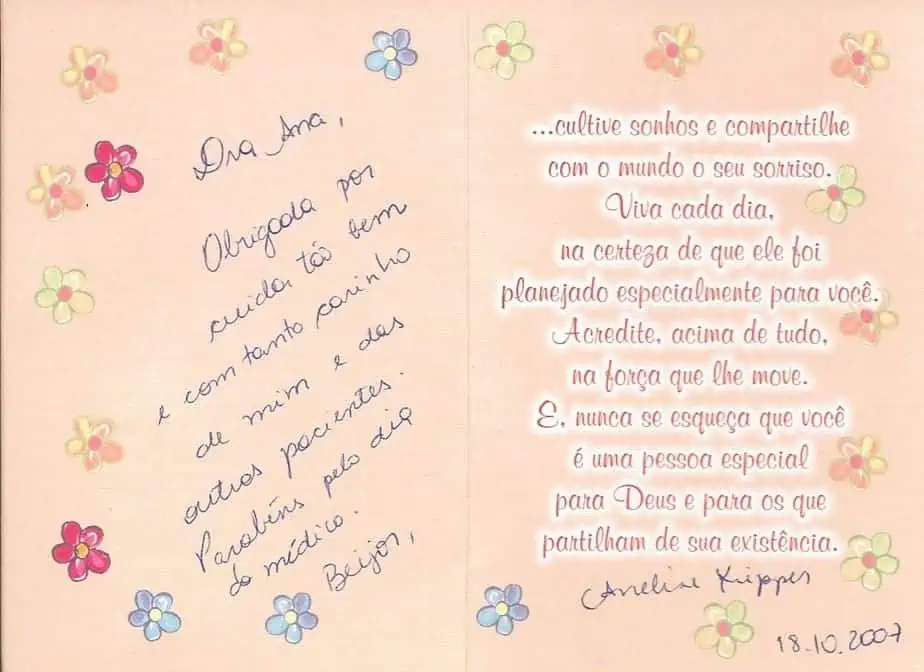 Dra Ana,
Obrigada por
cuidar tão bem
e com tanto carinho
de mim e das
outras pacientes.
Parabéns pelo dia
do médico.
Beijos,
...cultive sonhos e compartilhe
com o mundo o seu sorriso.
Viva cada dia,
na certeza de que ele foi
planejado especialmente para você.
Acredite, acima de tudo,
na força que lhe move.
E, nunca se esqueça que você
é uma pessoa especial
para Deus e para os que
partilham de sua existência.
Aneline Kripper
18.10.2007